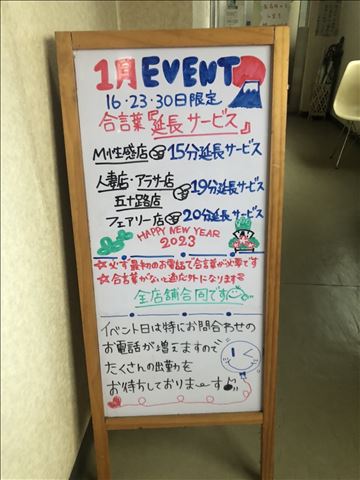 1月EVENT
16・23・30日限定
合言葉『延長サービス』
M性感店 15分延長サービス
人妻店・アラサー店
五十路店
19分延長サービス
フェアリー店 20分延長サービス
HAPPY NEW YEAR
2023
☆必ず最初のお電話で合言葉が必要です
☆合言葉がないと適応外になります
全店舗合同です
イベント日は特にお問合わせの
お電話が増えますので
たくさんの出勤を
お待ちしておりまーす♪